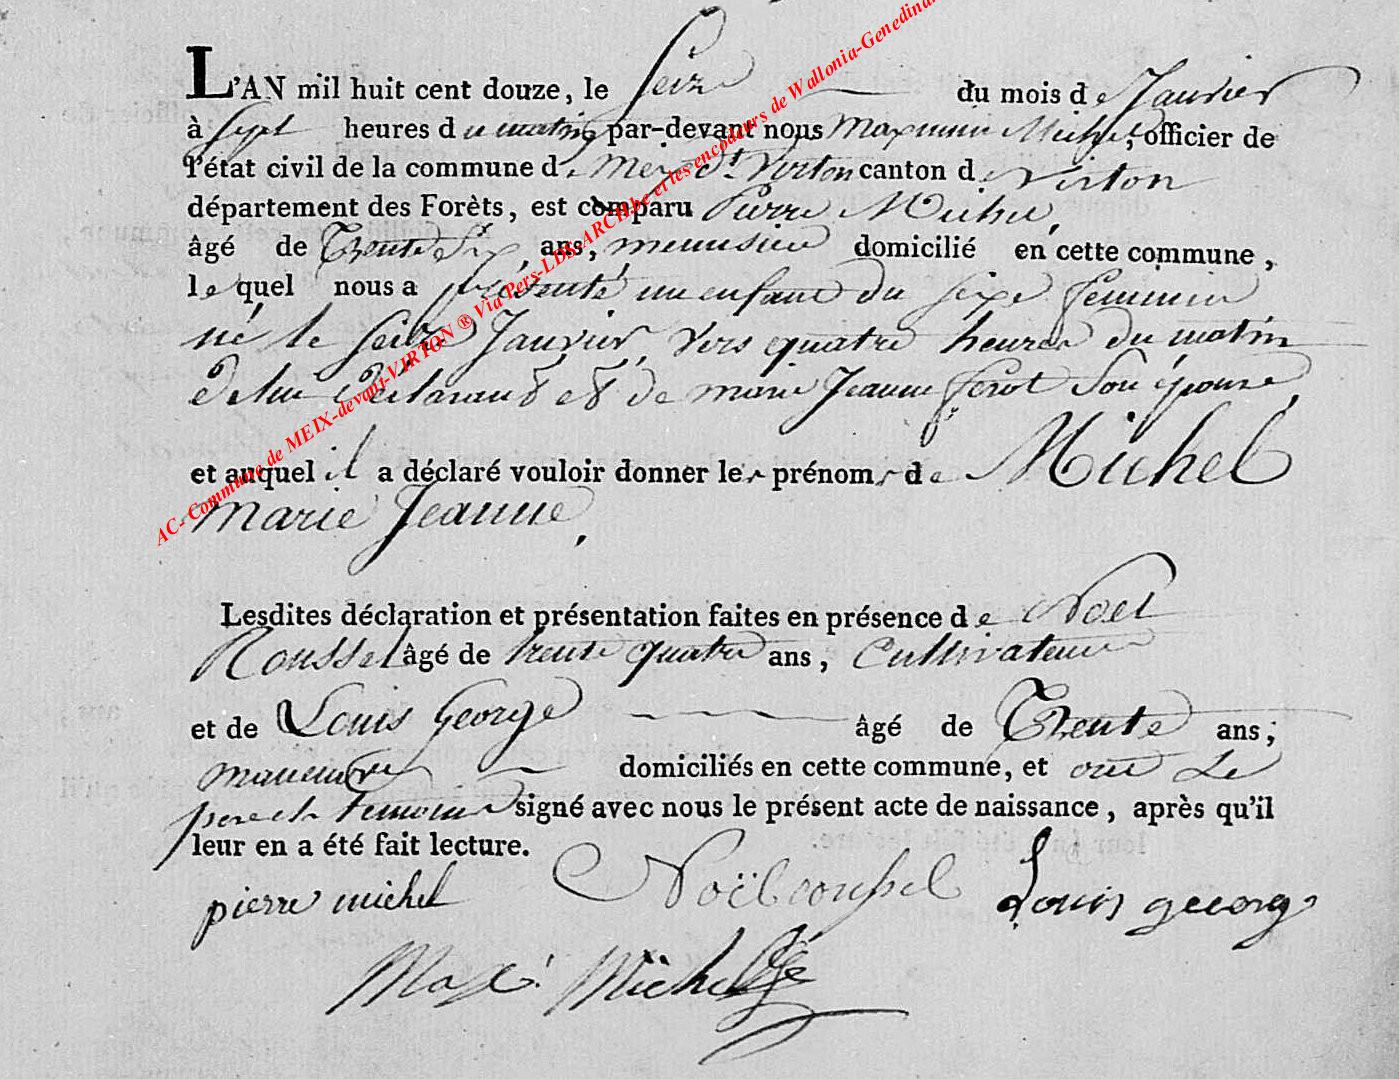 L'AN mil huit cent douze, le Seize du mois de Janvier
à Sept heures du matin par-devant nous Maximin Michel, officier de
l'état civil de la commune de Meix dt. Virton canton de Virton
département des Forêts, est comparu Pierre Michel,
âgé de Trente Six ans, menuisier domicilié en cette commune,
le quel nous a présenté un enfant du sexe féminin
né le Seize Janvier, vers quatre heures du matin
de lui déclarant et de marie Jeanne Son épouse,
et auquel il a déclaré vouloir donner les prénoms de Michel
marie Jeanne,
Lesdites déclaration et présentation faites en présence de Noel
Roussel âgé de trente quatre ans, Cultivateur
et de Louis George âgé de Trente ans;
manœuvre domiciliés en cette commune, et ont Le
pere et temoins signé avec nous le présent acte de naissance, après qu'il
leur en a été fait lecture.
pierre michel Noël roussel Louis georg
Max. Michel
AC- Commune de MEIX-devant-VIRTON ® Via Pers-LDS-ARCH.be et les encodeurs de Wallonia-Genedinan